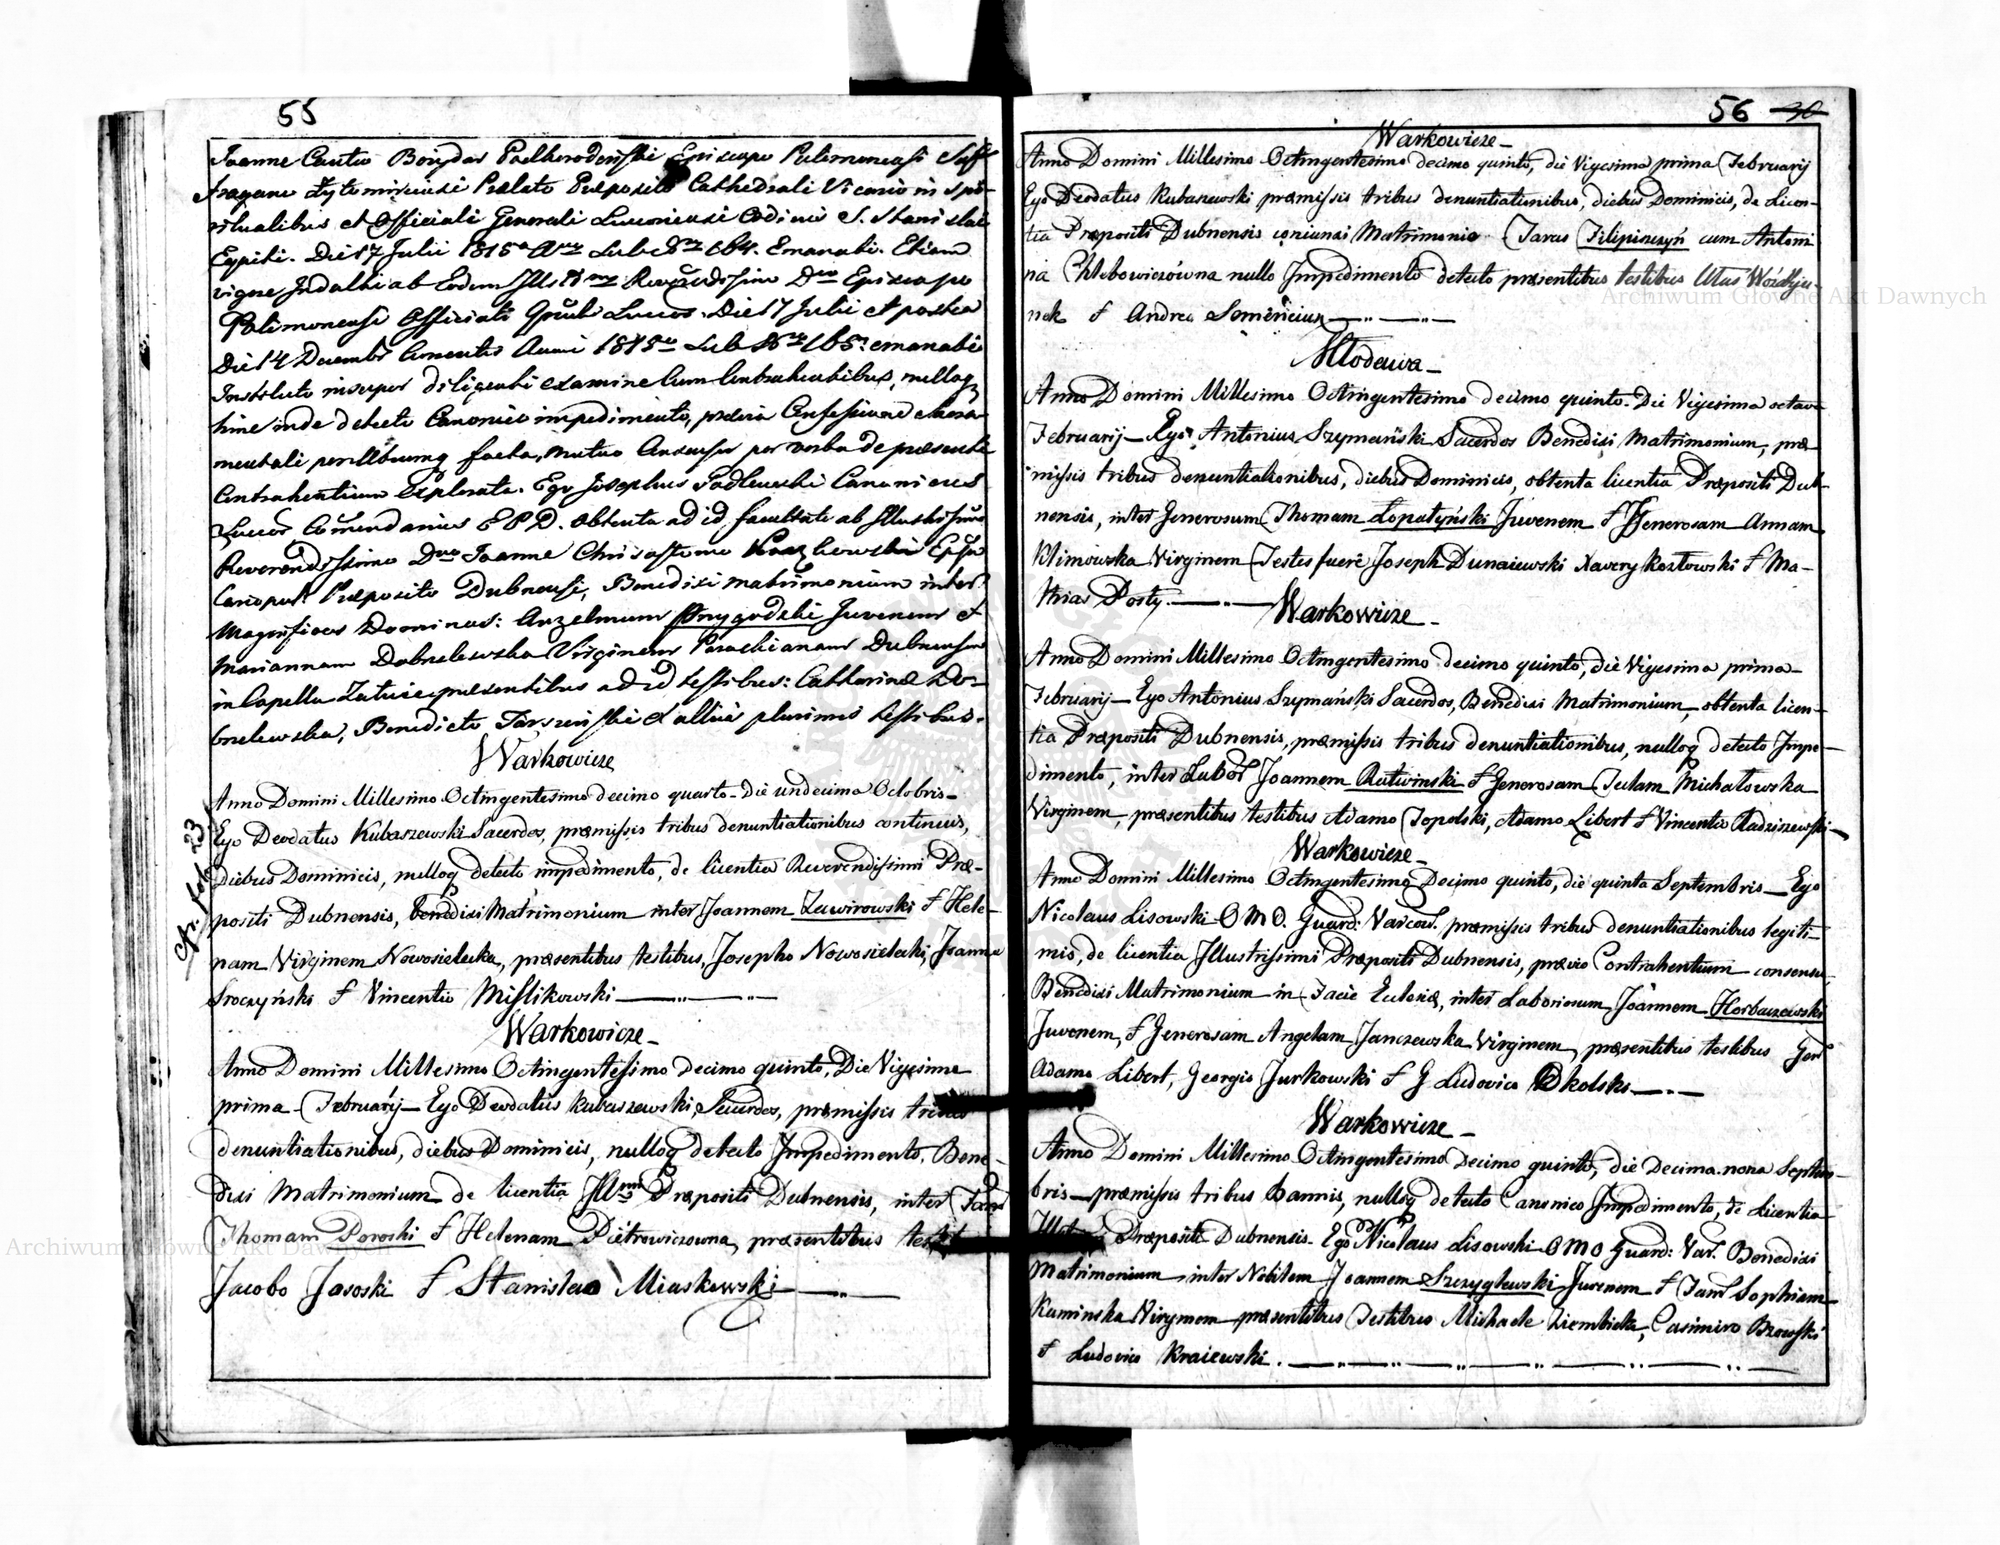 55
Joanne Cantio Bozydar Podhorodeński Episcopo Palimonensi Suf-
fragane Zytomiriensi Prælato Præposito Cathedrali Vicario in spi-
ritualibus et Officiali Generali Luceoriensi Ordinis S. Stanislai
Equiti. Die 17 Julii 1815 Sub N 164. Emanati. Etiam
vigore Indulti ab Eodem Reverendissimo Episcopo
Palimonensi Officiali Luceor. Die 17 Julii et postea
Die 14 Decembr currentis Anni 1815 Sub N 165 emanati
Instituto insuper diligenti examine cum Contrahentibus, nulloq
hinc inde detecto Canonico impedimento, prævia Confessione
facta, mutuo Consensu per verba de præsenti
Contrahentium Explorato. Ego Josephus Podlewski Canonicus
Luceor Commendarius E P D. obtenta ad id facultate ab Illustrissimo
Reverendissimo Dno Joanne Chrisostomo
Præposito Dubnensi, Benedixi matrimonium inter
Magnificos Dominos: Anzelmum Przygodzki Juvenem et
Mariannam Dobrzelewska Virginem Parochianam Dubnensem
in Capella præsentibus ad id testibus: Catharina Do-
brzelewska, Benedicto et aliis plurimis testibus.
Warkowicze
Anno Domini Millesimo Octingentesimo decimo quarto - Die undecima Octobris -
Ego Deodatus Kubaszewski Sacerdos, præmissis tribus denuntiationibus continuis,
Diebus Dominicis, nulloq detecto impedimento, de licentia Reverendissimi Præ-
positi Dubnensis, benedixi Matrimonium inter Joannem Zawirowski & Hele-
nam Virginem Nowosielecka, præsentibus testibus, Josepho Nowosielecki, Joanne
Sroczyński & Vincentio Mislikowski
Warkowicze -
Anno Domini Millesimo Octingentesimo decimo quinto, Die Vigesima
prima Februarij - Ego Deodatus Kubaszewski Sacerdos, præmissis tribus
denuntiationibus, diebus Dominicis, nulloq detecto Impedimento, Bene-
dixi Matrimonium de licentia Præpositi Dubnensis, inter
Thomam Doroski & Helenam Pietrowiczowna, præsentibus
Jacobo Jasoski & Stanislao Miaskowski
56 30
Warkowicze -
Anno Domini Millesimo Octingentesimo decimo quinto, die Vigesima prima Februarij
Ego Deodatus Kubaszewski præmissis tribus denuntiationibus, diebus Dominicis, de Licen-
tia Præpositi Dubnensis coniunxi Matrimonio Taras Filipiszczyń cum Antoni
na Chlebowiczówna nullo Impedimento detecto præsentibus testibus
nek & Andrea
Mlodawa -
Anno Domini Millesimo Octingentesimo decimo quinto. Die Vigesima octava
Februarij - Ego Antonius Szymański Sacerdos Benedixi Matrimonium, præ
missis tribus denuntiationibus, diebus Dominicis, obtenta licentia Præpositi Dub-
nensis, inter Generosum Thomam Łopatyński Juvenem & Generosam Annam
Klimowska Virginem Testes fuere Joseph Dunaiewski Xawery Kozłowski & Ma-
thias Posty.
Warkowicze -
Anno Domini Millesimo Octingentesimo decimo quinto, die Vigesima prima
Februarij - Ego Antonius Szymański Sacerdos, Benedixi Matrimonium, obtenta licen-
tia Præpositi Dubnensis, præmissis tribus denuntiationibus, nulloq detecto Impe-
dimento, inter Labor Joannem Rutwinski & Generosam Teclam Michałowska
Virginem, præsentibus testibus Adamo Topolski, Adamo Libert & Vincentio Radziszewski
Warkowicze -
Anno Domini Millesimo Octingentesimo Decimo quinto, die quinta Septembris - Ego
Nicolaus Lisowski O M O. Guard: Varcow. præmissis tribus denuntiationibus legiti-
mis, de licentia Illustrissimi Præpositi Dubnensis, prævio Contrahentium consensu,
Benedixi Matrimonium in Facie Eclesiæ, inter Laboriosum Joannem Horbaszewski
Juvenem, & Generosam Angelam Janczewska Virginem, præsentibus testibus Gen
Adamo Libert, Georgio Jurkowski & G Ludovico
Warkowicze -
Anno Domini Millesimo Octingentesimo Decimo quinto, die Decima nona Septem-
bris - præmissis tribus Bannis, nulloq detecto Canonico Impedimento, de Licentia
Præpositi Dubnensis. Ego Nicolaus Lisowski O M O Guard: Var. Benedixi
Matrimonium inter Nobilem Joannem Szczyglewski Juvenem & Fam Sophiam
Kaminska Virginem præsentibus Testibus Michaele Ziembicki, Casimiro Brzowski
& Ludovico Kraiewski.
Archiwum Główne Akt Dawnych
Archiwum Główne Akt Dawnych